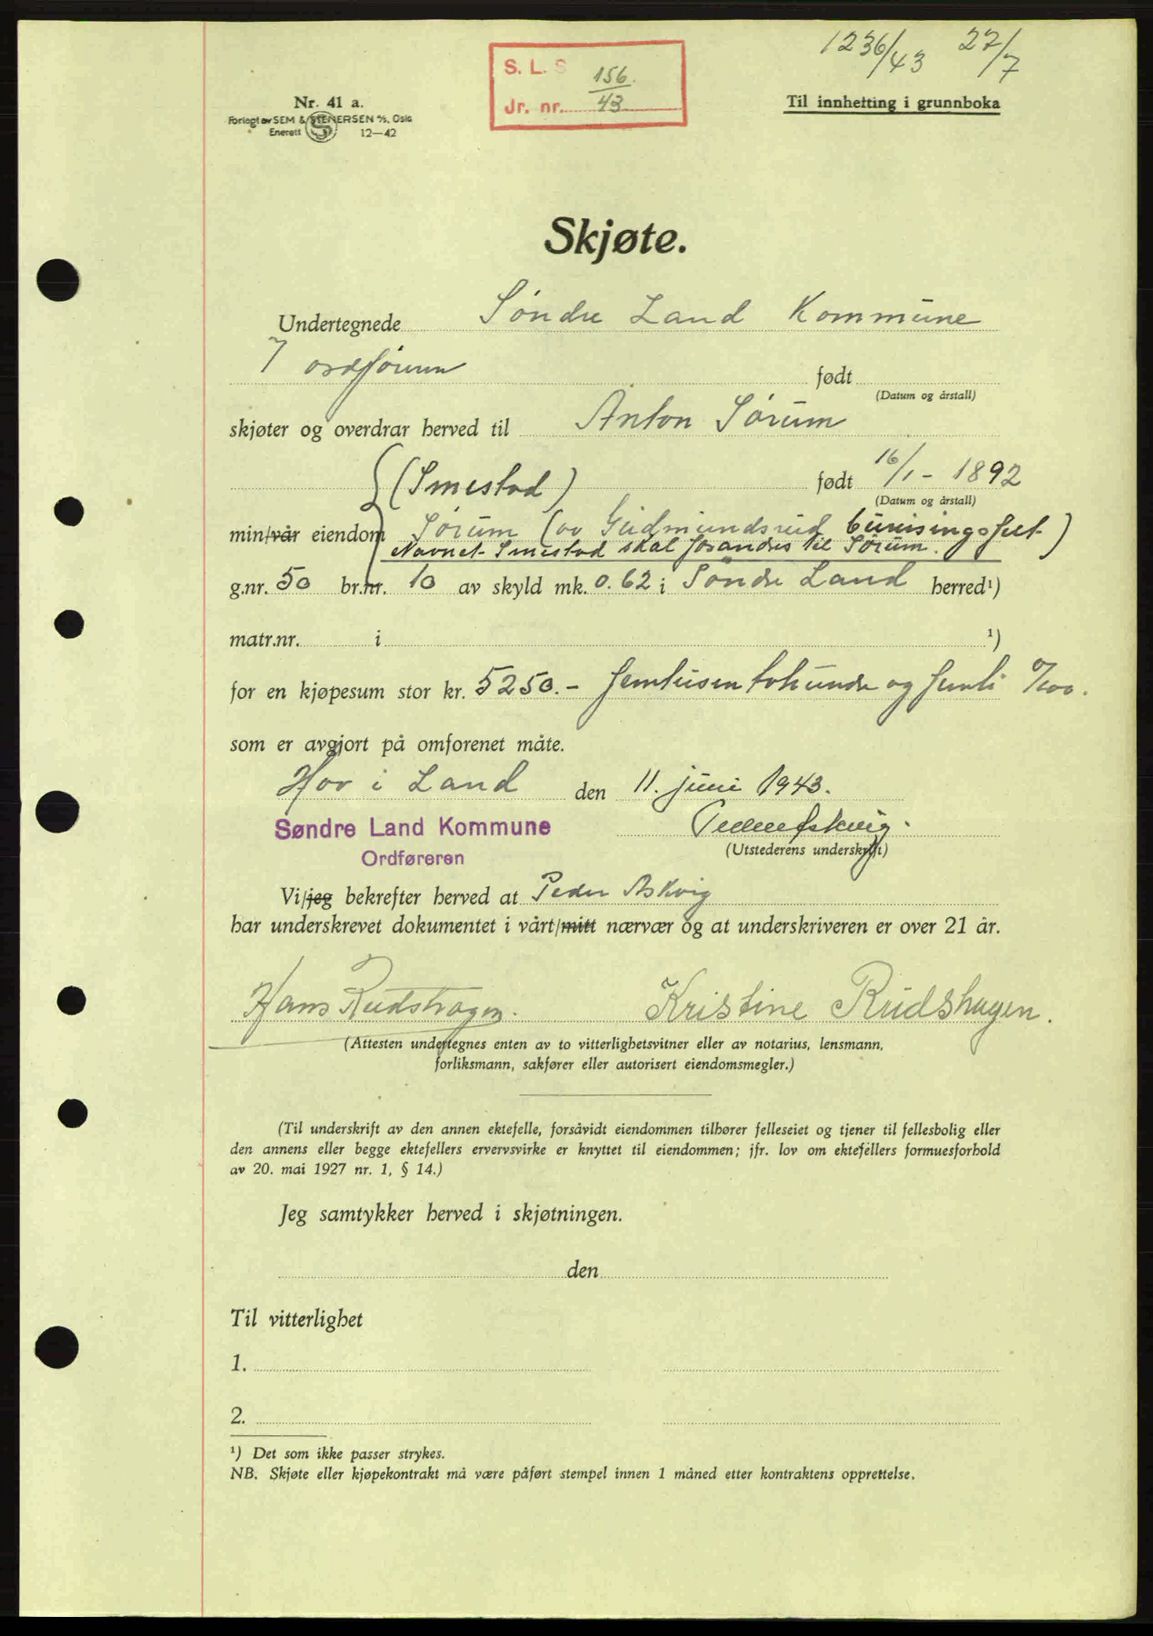 1236/43 27/7
S. L. S 156.
Jr. nr. 43
Nr. 41 a.
Forlagt av SEM & STENERSEN A/S, Oslo
Enerett 12—42
Til innhefting i grunnboka
Skjøte.
Undertegnede Søndre Land Kommune
født
(Datum og årstall)
skjøter og overdrar herved til Anton Sørum
(Smestad) født 16/1 - 1892
(Datum og årstall)
min/vår eiendom Sørum (av Gudmundsrud bureisingsfelt)
Navnet Smestad skal forandres til Sørum.
g.nr. 50 br.nr. 10 av skyld mk. 0.62 i Søndre Land herred¹)
matr.nr. i ¹)
for en kjøpesum stor kr. 5250.- femtusentohundre og femti 0/100.
som er avgjort på omforenet måte.
Hov i Land den 11. juni 1943.
Søndre Land Kommune
Ordføreren
(Utstederens underskrift)
Vi/jeg bekrefter herved at Peder Askvig
har underskrevet dokumentet i vårt/mitt nærvær og at underskriveren er over 21 år.
Hans Rudshagen. Kristine Rudshagen.
(Attesten undertegnes enten av to vitterlighetsvitner eller av notarius, lensmann,
forliksmann, sakfører eller autorisert eiendomsmegler.)
(Til underskrift av den annen ektefelle, forsåvidt eiendommen tilhører felleseiet og tjener til fellesbolig eller
den annens eller begge ektefellers ervervsvirke er knyttet til eiendommen; jfr. lov om ektefellers formuesforhold
av 20. mai 1927 nr. 1, § 14.)
Jeg samtykker herved i skjøtningen.
den
Til vitterlighet
1.
2.
¹) Det som ikke passer strykes.
NB. Skjøte eller kjøpekontrakt må være påført stempel innen 1 måned etter kontraktens opprettelse.